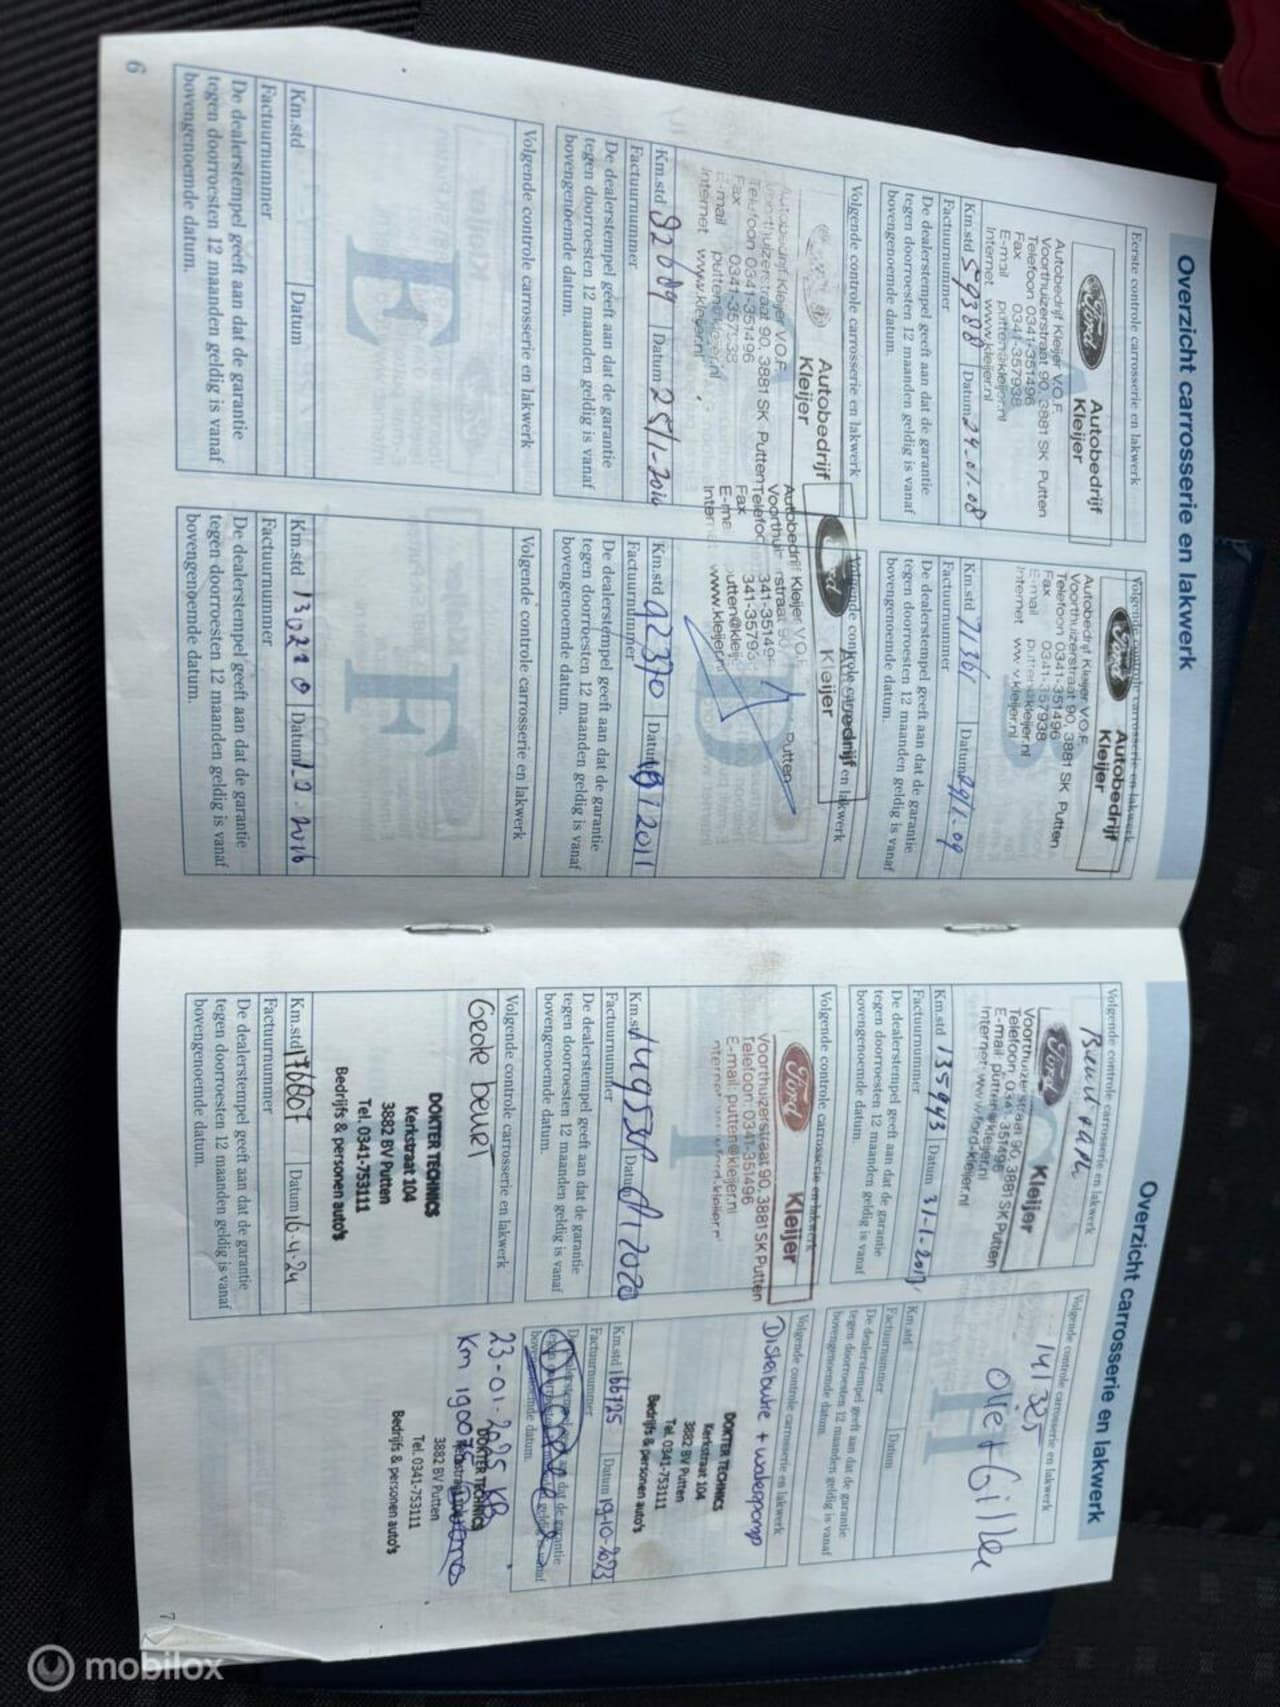 Overzicht carrosserie en lakwerk
Eerste controle carrosserie en lakwerk
Ford
Autobedrijf
Kleijer
Autobedrijf Kleijer V.O.F.
Voorthuizerstraat 90, 3881 SK Putten
Telefoon 0341-351496
Fax 0341-357938
E-mail putten@kleijer.nl
Internet www.kleijer.nl
Km.std 59388 Datum 24-01-08
Factuurnummer
De dealerstempel geeft aan dat de garantie
tegen doorroesten 12 maanden geldig is vanaf
bovengenoemde datum.
Volgende controle carrosserie en lakwerk
Ford
Autobedrijf
Kleijer
Autobedrijf Kleijer V.O.F.
Voorthuizerstraat 90, 3881 SK Putten
Telefoon 0341-351496
Fax 0341-357938
E-mail putten@kleijer.nl
Internet www.kleijer.nl
Km.std 71361 Datum 29/1-09
Factuurnummer
De dealerstempel geeft aan dat de garantie
tegen doorroesten 12 maanden geldig is vanaf
bovengenoemde datum.
Volgende controle carrosserie en lakwerk
Autobedrijf
Kleijer
Autobedrijf Kleijer V.O.F.
Voorthuizerstraat 90, 3881 SK Putten
Telefoon 0341-351496
Fax 0341-357938
E-mail putten@kleijer.nl
Internet www.kleijer.nl
Km.std Datum 25/1-2010
Factuurnummer
De dealerstempel geeft aan dat de garantie
tegen doorroesten 12 maanden geldig is vanaf
bovengenoemde datum.
Volgende controle carrosserie en lakwerk
Ford
Autobedrijf
Kleijer
Autobedrijf Kleijer V.O.F.
Putten
D
Km.std 92370 Datum 2011
Factuurnummer
De dealerstempel geeft aan dat de garantie
tegen doorroesten 12 maanden geldig is vanaf
bovengenoemde datum.
Volgende controle carrosserie en lakwerk
E
Km.std Datum
Factuurnummer
De dealerstempel geeft aan dat de garantie
tegen doorroesten 12 maanden geldig is vanaf
bovengenoemde datum.
Volgende controle carrosserie en lakwerk
F
Km.std Datum 2016
Factuurnummer
De dealerstempel geeft aan dat de garantie
tegen doorroesten 12 maanden geldig is vanaf
bovengenoemde datum.
6
Overzicht carrosserie en lakwerk
Volgende controle carrosserie en lakwerk
Ford
Kleijer
Voorthuizerstraat 90, 3881 SK Putten
Telefoon: 0341-351496
E-mail: putten@kleijer.nl
Internet: www.ford-kleijer.nl
Km.std 135943 Datum 31-1-2017
Factuurnummer
De dealerstempel geeft aan dat de garantie
tegen doorroesten 12 maanden geldig is vanaf
bovengenoemde datum.
Volgende controle carrosserie en lakwerk
141325
olie + Gilter
H
Km.std Datum
Factuurnummer
De dealerstempel geeft aan dat de garantie
tegen doorroesten 12 maanden geldig is vanaf
bovengenoemde datum.
Volgende controle carrosserie en lakwerk
Ford
Kleijer
Voorthuizerstraat 90, 3881 SK Putten
Telefoon: 0341-351496
E-mail: putten@kleijer.nl
I
Km.std Datum 2020
Factuurnummer
De dealerstempel geeft aan dat de garantie
tegen doorroesten 12 maanden geldig is vanaf
bovengenoemde datum.
Volgende controle carrosserie en lakwerk
Distributie + waterpomp
DOKTER TECHNICS
Kerkstraat 104
3882 BV Putten
Tel. 0341-753111
Bedrijfs & personen auto's
Km.std 166725 Datum 19-10-2023
Factuurnummer
Volgende controle carrosserie en lakwerk
Grote beurt
DOKTER TECHNICS
Kerkstraat 104
3882 BV Putten
Tel. 0341-753111
Bedrijfs & personen auto's
Km.std 176807 Datum 16-4-24
Factuurnummer
De dealerstempel geeft aan dat de garantie
tegen doorroesten 12 maanden geldig is vanaf
bovengenoemde datum.
23-01-2025
DOKTER TECHNICS
3882 BV Putten
Tel. 0341-753111
Bedrijfs & personen auto's
7
mobilox